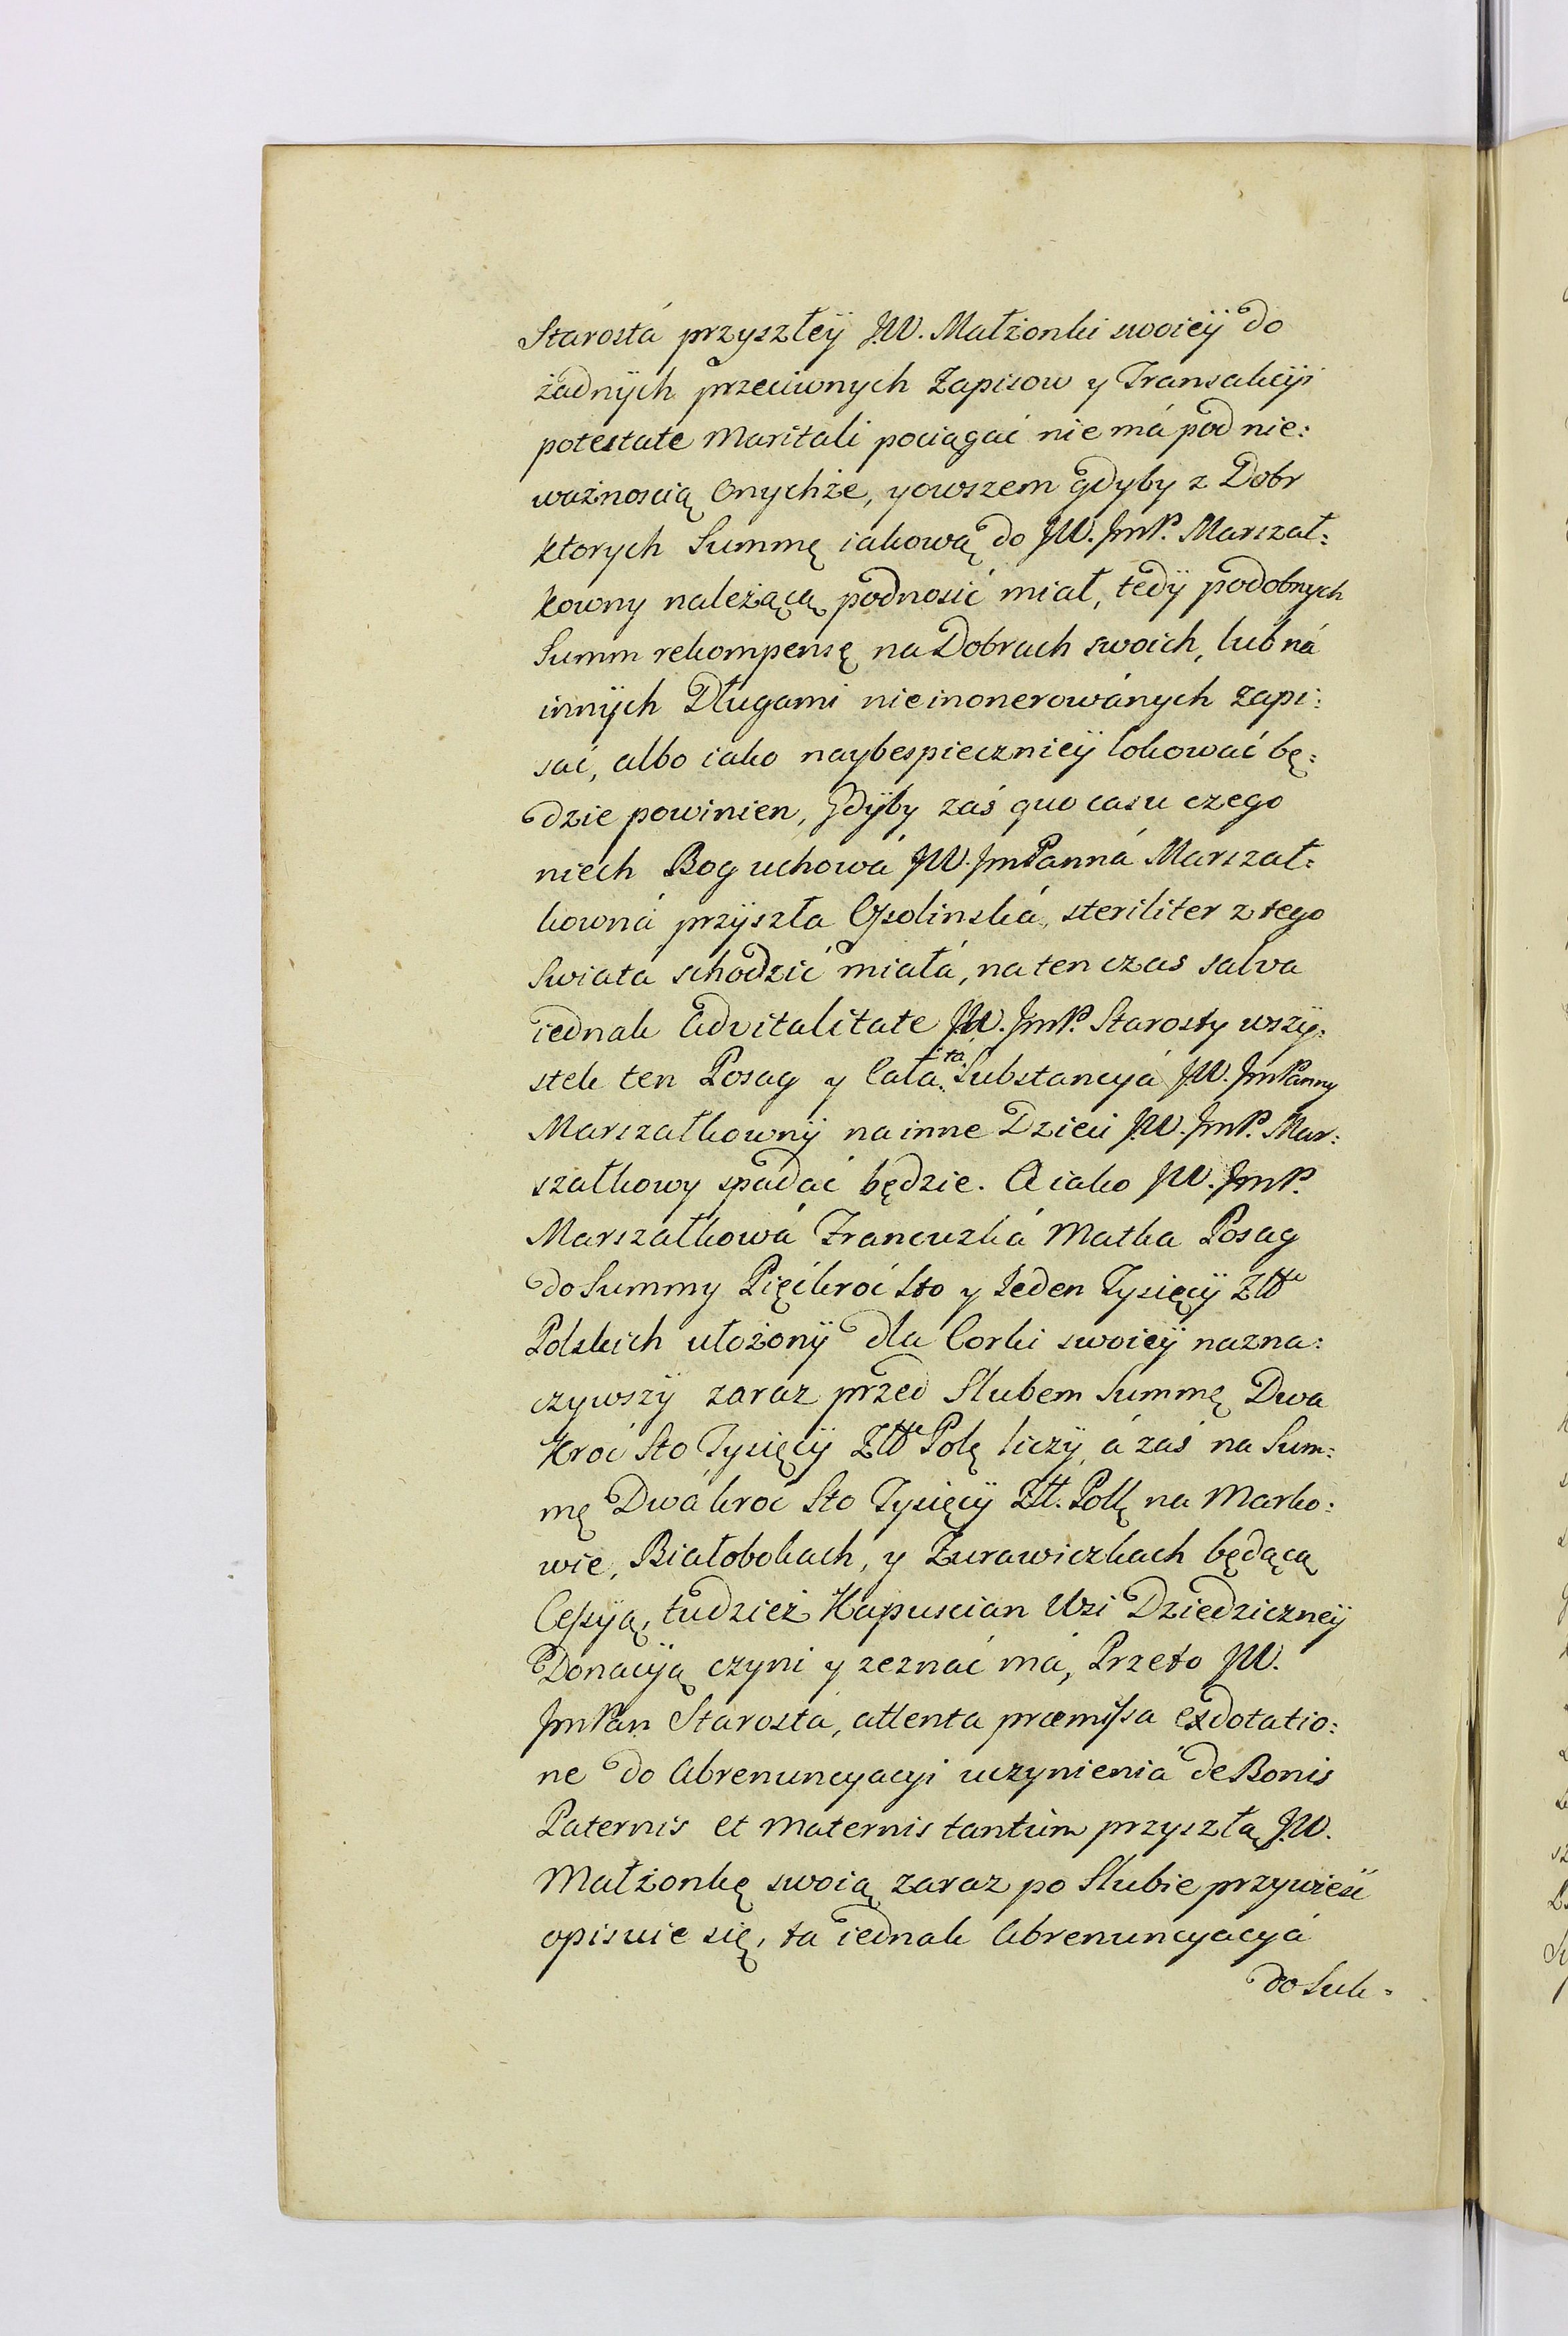 Starostá przyszłeÿ JW. Małżonki swoieÿ do
żadnÿch przeciwnych Zapisow y Transakcÿi
potestate Maritali pociągać nie má pod nie:
ważnoscią Onychże, yowszem gdyby z Dobr
ktorych Summę iakową do JW. JmP. Marszał:
kowny należącą podnosić miał, tedÿ podobnych
Summ rekompensę na Dobrach swoich, lub ná
innÿch Długami nieinonerowánych zapi:
sać, albo iako naybespiecznieÿ lokować bę:
dzie powinien, Gdÿby zaś quo casu czego
niech Bog uchowá JW. JmPanná Marszał:
kowná przÿszła Ossolinská, steriliter z tego
Swiatá schodzić miałá, na ten czas salva
iednak Advitalitate JW. JmP. Starosty wszÿ:
stek ten Posag y Cała ta Substancyá JW. JmPanny
Marszałkownÿ na inne Dzieci JW. JmP. Mar:
szałkowy spadać będzie. A iako JW. JmP.
Marszałkowá Francuzká Matka Posag
do Summy Pięćkroć Sto y Jeden Tysięcÿ Złłt
Polskich ułożonÿ dla Corki swoieÿ nazna:
czywszÿ zaraz przed Slubem Summę Dwa
kroć Sto Tysięcÿ Złłt Polę liczÿ, á zaś na Sum:
mę Dwákroć Sto Tysięcÿ Złł. Pollę na Marko:
wie, Białobokach, y Zurawiczkach będącą
Cessyą, tudzież Kapuscian Wsi Dziedziczneÿ
Donacÿą czyni y zeznać má, Przeto JW.
JmPan Starostá, attenta præmissa exdotatio:
ne do Abrenuncyacyi uczynieniá de Bonis
Paternis et Maternis tantùm przyszłą JW.
Małżonkę swoią zaraz po Slubie przywieść
opisuie się, ta iednak Abrenuncyacyá
do Suk: